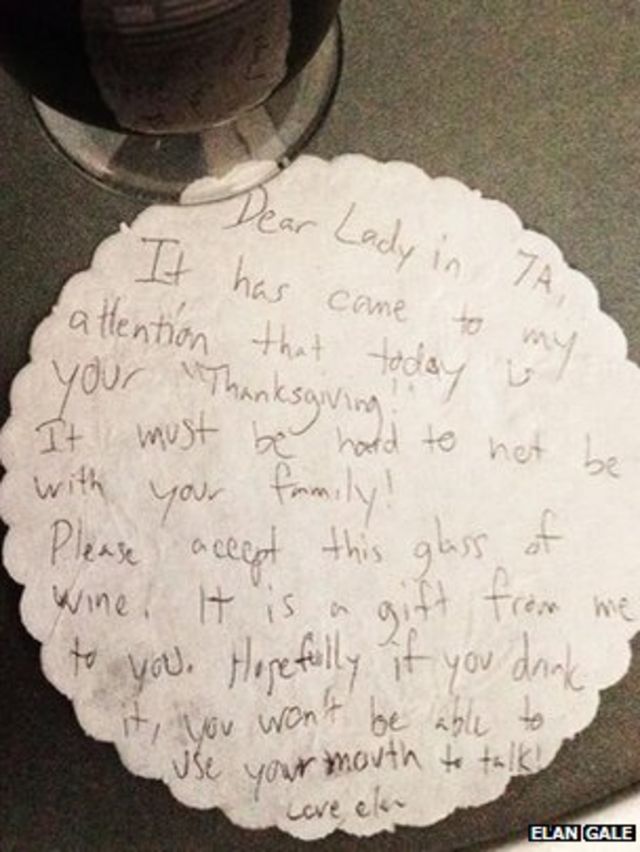 Dear Lady in 7A,
It has come to my
attention that today is
your "Thanksgiving!"
It must be hard to not be
with your family!
Please accept this glass of
wine. It is a gift from me
to you. Hopefully if you drink
it, you won't be able to
use your mouth to talk!
Love, elan
ELAN GALE